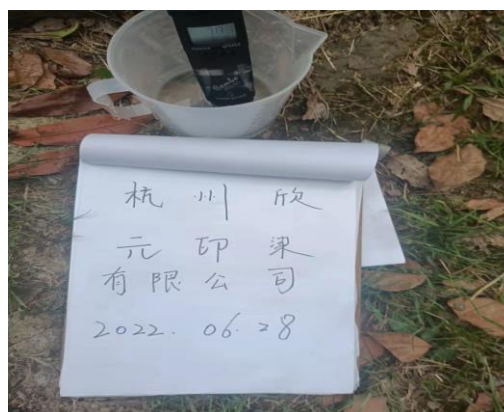 杭州欣
元印染
有限公司
2022.06.28